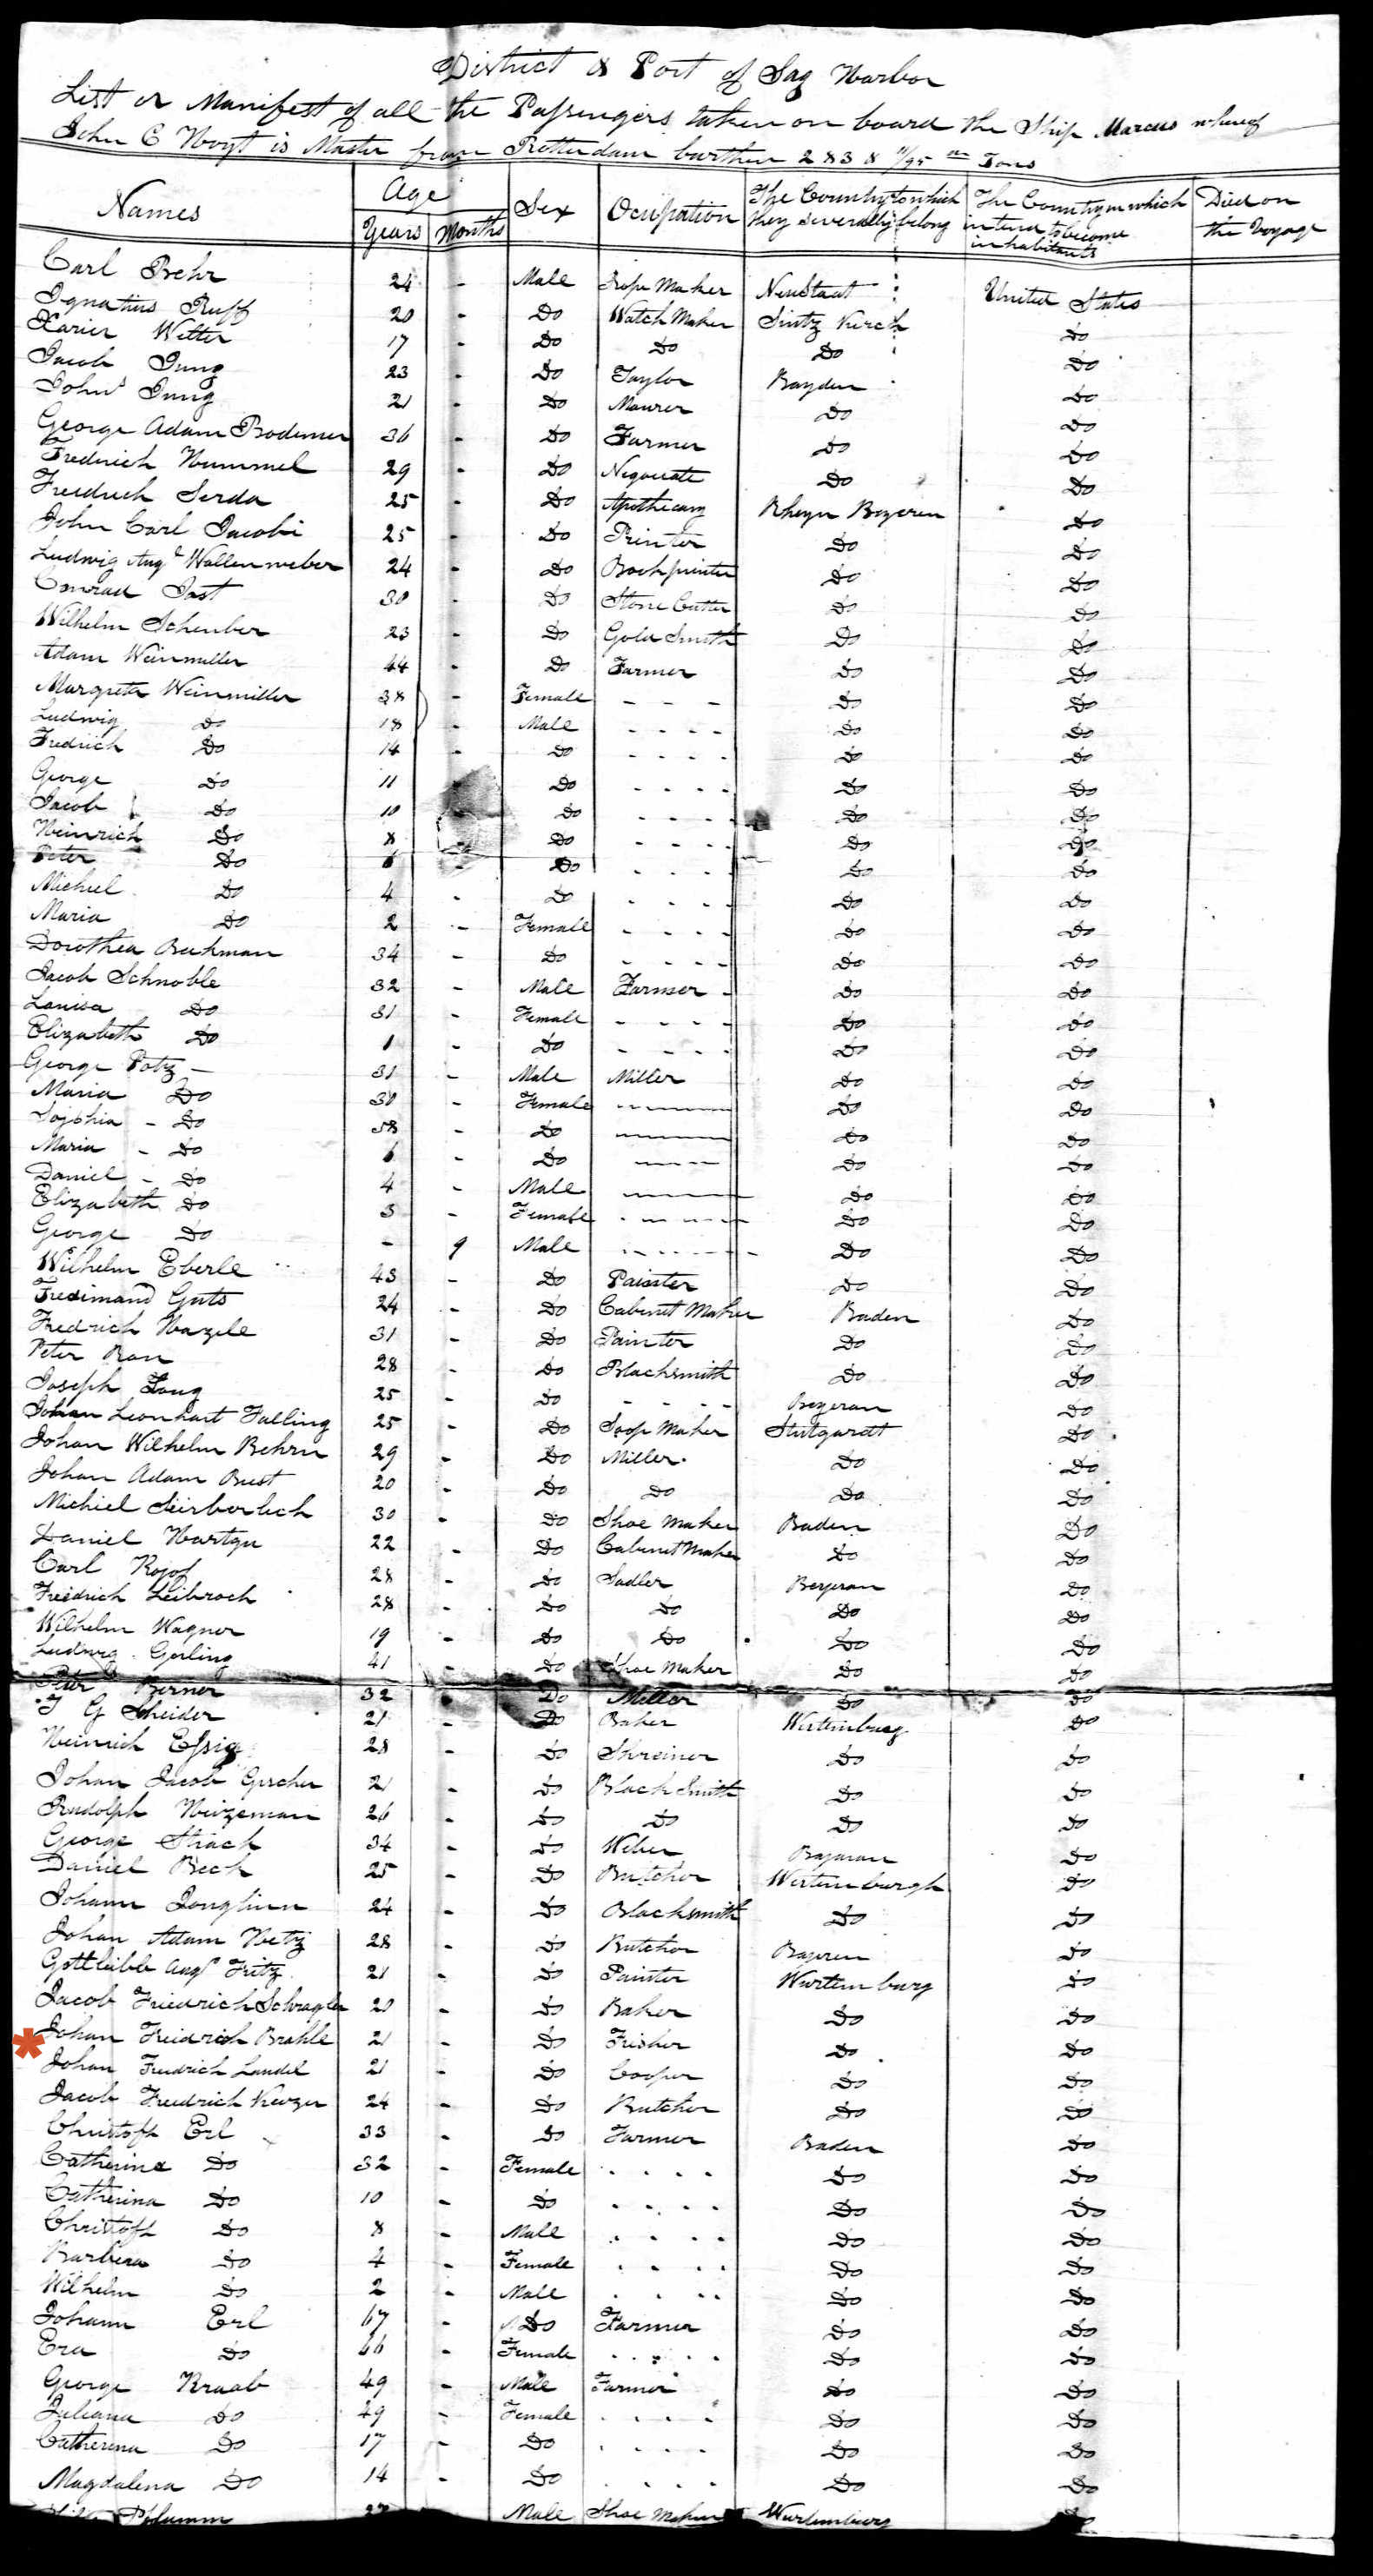 District & Port of Sag Harbor
List or Manifest of all the Passengers taken on board the Ship Marcus whereof
John E Hoyt is Master from Rotterdam burthen 283 & 11/95 Tons
Names Age Sex Occupation The Country to which they severally belong The Country in which intend to become inhabitants Died on the Voyage
Years Months
Carl Behr 24 - Male Rope Maker Neustadt United States
Ignatius Ruff 20 - Do Watch Maker Do
Xavier Wetter 17 - Do Do Do Do
Jacob Jung 23 - Do Taylor Bayden Do
John Jung 21 - Do Maurer Do Do
George Adam Bodemer 36 - Do Farmer Do Do
Frederich Hummel 29 - Do Negociate Do Do
Freidrich Serda 25 - Do Apothecary Rheyn Bayeren Do
John Carl Jacobi 25 - Do Printer Do Do
Ludwig Aug Wallenweber 24 - Do Bookprinter Do Do
Conrad Jost 30 - Do Stone Cutter Do Do
Wilhelm Schenber 23 - Do Gold Smith Do Do
Adam Weinmiller 44 - Do Farmer Do Do
Margreta Weinmiller 38 - Female - - - Do Do
Ludwig Do 18 - Male - - - - Do Do
Fredrich Do 14 - Do - - - - Do Do
George Do 11 Do - - - - Do Do
Jacob Do 10 Do - - - - Do Do
Heinrich Do 8 - Do - - - - Do Do
Peter Do 6 - Do - - - - Do Do
Michiel Do 4 - Do - - - - Do Do
Maria Do 2 - Female - - - - Do Do
Dorothea Beekman 34 - Do - - - - Do Do
Jacob Schnoble 32 - Male Farmer - Do Do
Louisa Do 31 - Female - - - - Do Do
Elizabeth Do 1 - Do - - - - Do Do
George Potz - 31 - Male Miller Do Do
Maria Do 30 - Female Do Do
Sophia - Do 58 - Do Do Do
Maria - Do 6 - Do Do Do
Daniel - Do 4 - Male Do Do
Elizabeth Do 3 - Female Do Do
George Do - 9 Male Do Do
Wilhelm Eberle 43 - Do Painter Do Do
Fredimand Guts 24 - Do Cabinet Maker Baden Do
Fredrich Hazele 31 - Do Painter Do Do
Peter Ran 28 - Do Blacksmith Do Do
Joseph 25 - Do - - - - Bayeran Do
Johan Leonhart Falling 25 - Do Soop Maker Stutgardt Do
Johan Wilhelm Behrn 29 - Do Miller Do Do
Johan Adam Bust 20 - Do Do Do Do
Michiel Seirberlich 30 - Do Shoe Maker Baden Do
Daniel Hartyn 22 - Do Cabinet Maker Do Do
Carl 28 - Do Sadler Bayeran Do
Freidrich Leibroch 28 - Do Do Do Do
Wilhelm Wagner 19 - Do Do Do Do
Ludwig Gerling 41 - Do Shoe Maker Do Do
Peter Berner 32 - Do Miller Do Do
J G Sheider 21 - Do Baker Wirtemburg Do
Heinrich Essig 28 - Do Shreiner Do Do
Johan Jacob 21 - Do Black Smith Do Do
Rudolph Heizeman 26 - Do Do Do Do
George Strach 34 - Do Weber Bayaran Do
Daniel Beck 25 - Do Butcher Wirtemburgh Do
Johann 24 - Do Blacksmith Do Do
Johan Adam Hetz 28 - Do Butcher Bayeren Do
Gottleible Augs Fritz 21 - Do Painter Wurtemburg Do
Jacob Friedrich Schragler 20 - Do Baker Do Do
Johan Freidrich Brahle 21 - Do Frisher Do Do
Johan Freidrich Landel 21 - Do Cooper Do Do
Jacob Freidrich 24 - Do Butcher Do Do
Christoph Erl 33 - Do Farmer Baden Do
Catherina Do 32 - Female - - - - Do Do
Catherina Do 10 - Do - - - - Do Do
Christoph Do 8 - Male - - - - Do Do
Barbera Do 4 - Female - - - - Do Do
Wilhelm Do 2 - Male - - - - Do Do
Johann Erl 67 - Do Farmer Do Do
Eva Do 66 - Female - - - - Do Do
George Kraab 49 - Male Farmer Do Do
Juliana Do 49 - Female - - - - Do Do
Catherina Do 17 - Do - - - - Do Do
Magdalena Do 14 - Do - - - - Do Do
Male Shoe Maker Wurtemburg Do